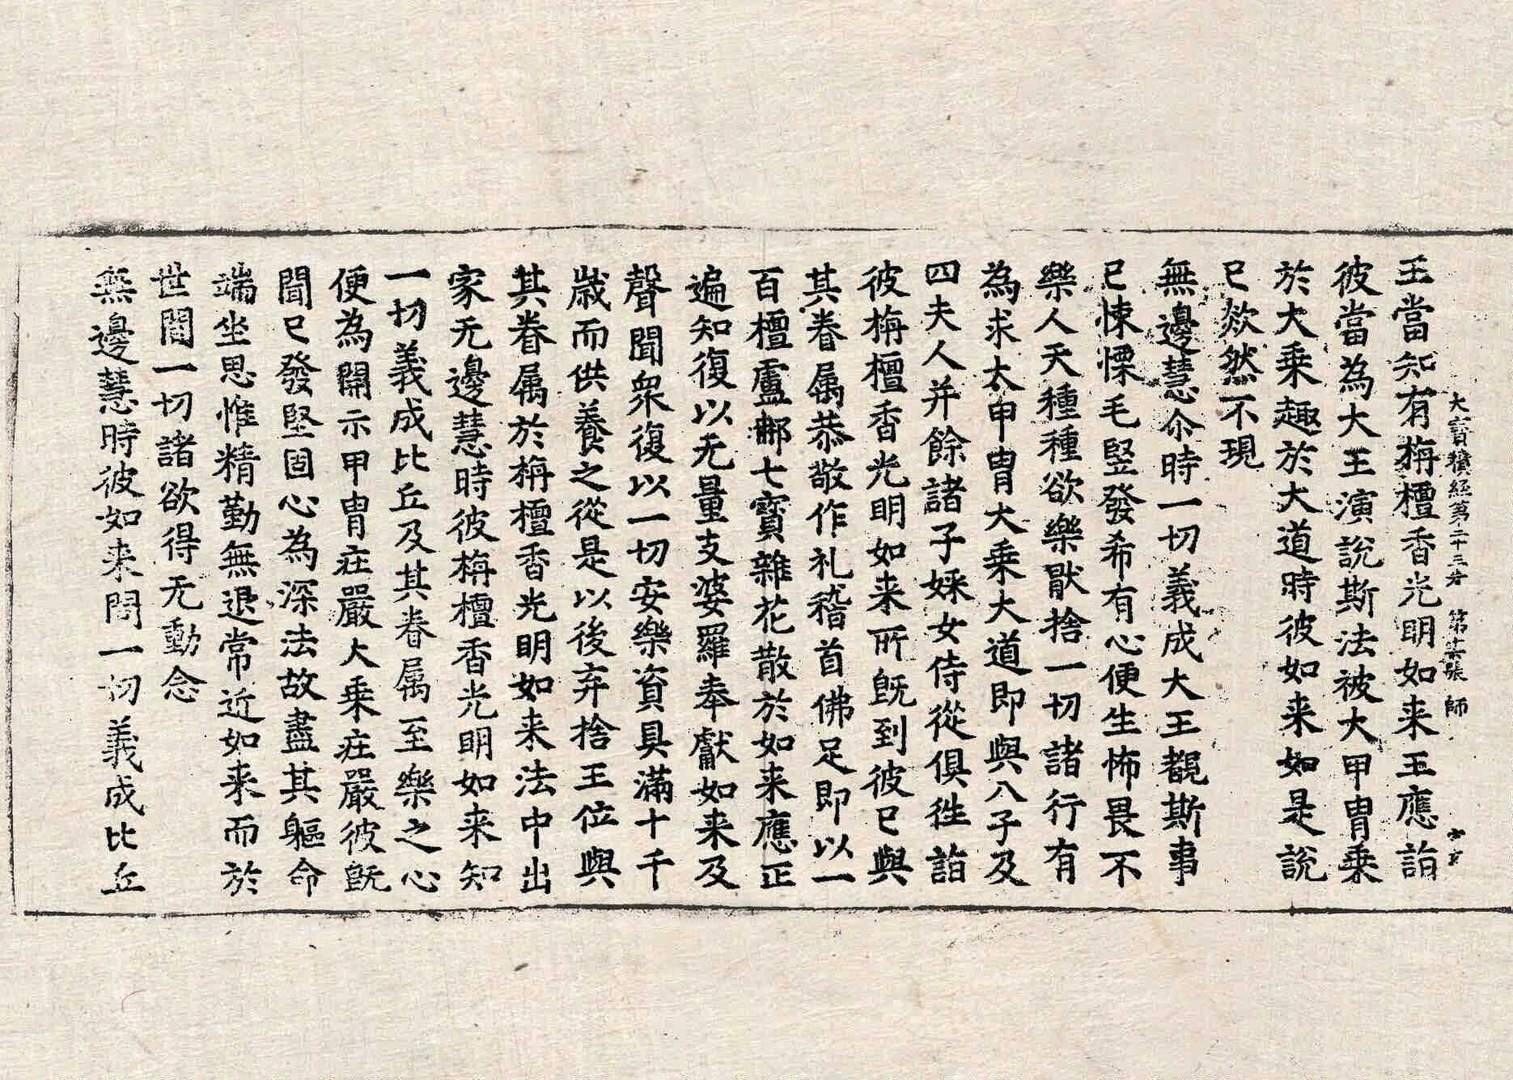 大寳積經第二十三 第 張 師
王當知有栴檀香光明如来王應詣
彼當為大王演說斯法被大甲冑乘
於大乘趣於大道時彼如来如是說
已欻然不現
無邊慧尒時一切義成大王覩斯事
已悚慄毛竪發希有心便生怖畏不
樂人天種種欲樂猒捨一切諸行有
為求太甲冑大乘大道即與八子及
四夫人并餘諸子婇女侍從俱徃詣
彼栴檀香光明如来所既到彼已與
其眷属恭敬作礼稽首佛足即以一
百檀盧那七寳雜花散於如来應正
遍知復以无量支婆羅奉獻如来及
聲聞衆復以一切安樂資具滿十千
歳而供養之從是以後弃捨王位與
其眷属於栴檀香光明如来法中出
家无邊慧時彼栴檀香光明如来知
一切義成比丘及其眷属至樂之心
便為開示甲冑荘嚴大乘荘嚴彼既
聞已發堅固心為深法故盡其軀命
端坐思惟精勤無退常近如来而於
世間一切諸欲得无動念
無邊慧時彼如来問一切義成比丘